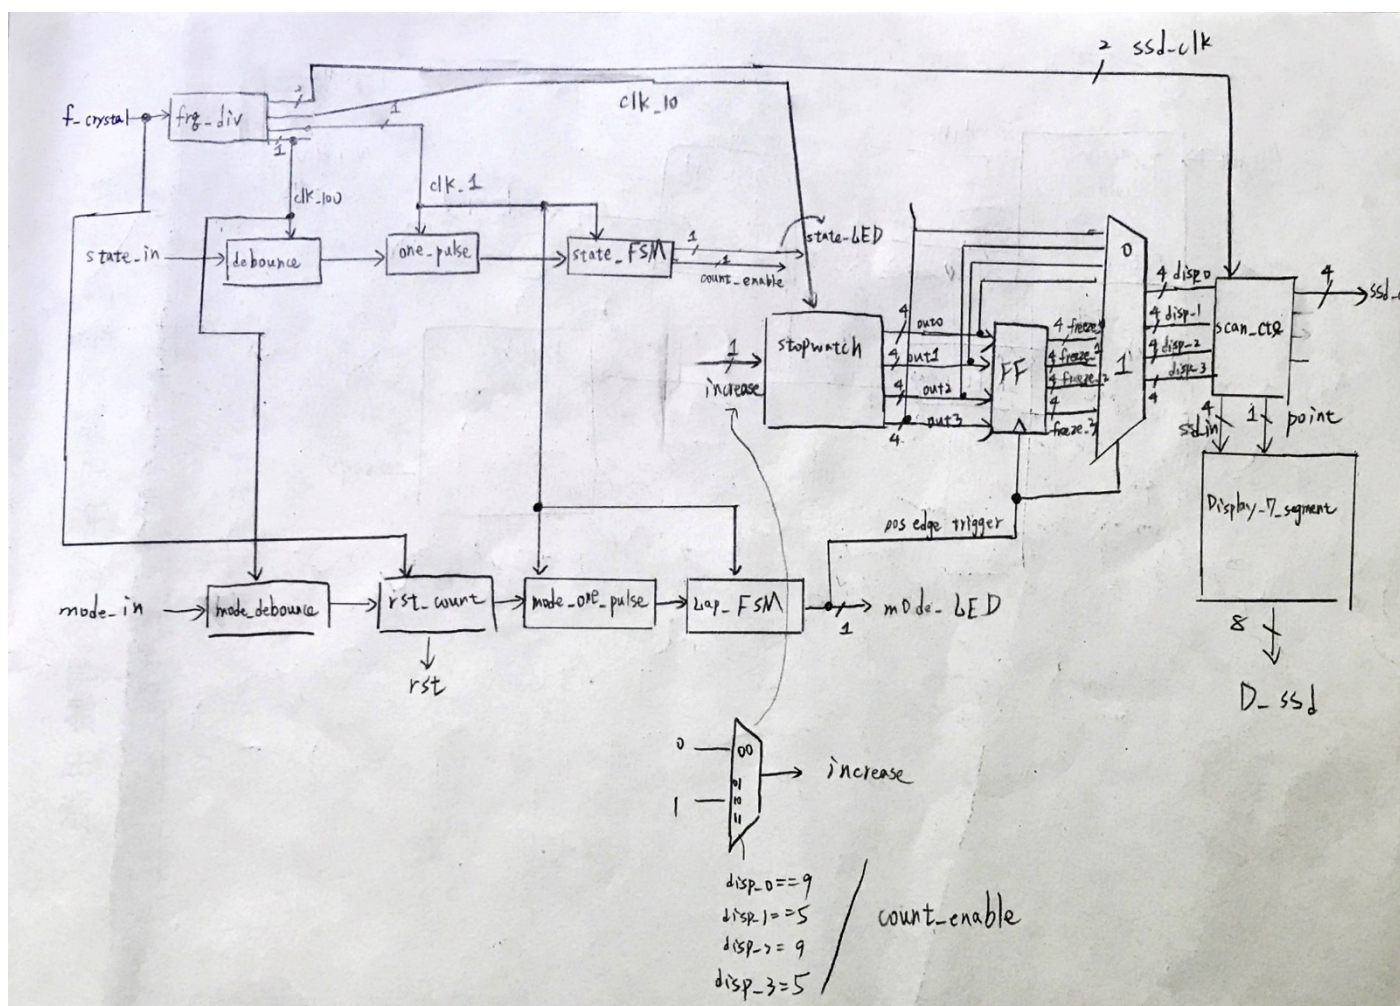 2 ssd-clk
f_crystal
frq_div
2
1
1
clk_10
clk_100
clk_1
state_in
debounce
one_pulse
state_FSM
1
1
state_LED
count_enable
1
increase
stopwatch
4 out0
4 out1
4 out2
4 out3
FF
4 freeze_0
4 freeze_1
4 freeze_2
4 freeze_3
0
1
4 disp0
4 disp-1
4 disp-2
4 disp-3
scan_ctl
4
4
ssd_in
1
point
Display_7_segment
8
D_ssd
pos edge trigger
mode_in
mode_debounce
rst_count
mode_one_pulse
Lap_FSM
1
mode_LED
rst
0
1
00
01
10
11
increase
disp_0==9
disp_1==5
disp_2=9
disp_3=5
count_enable